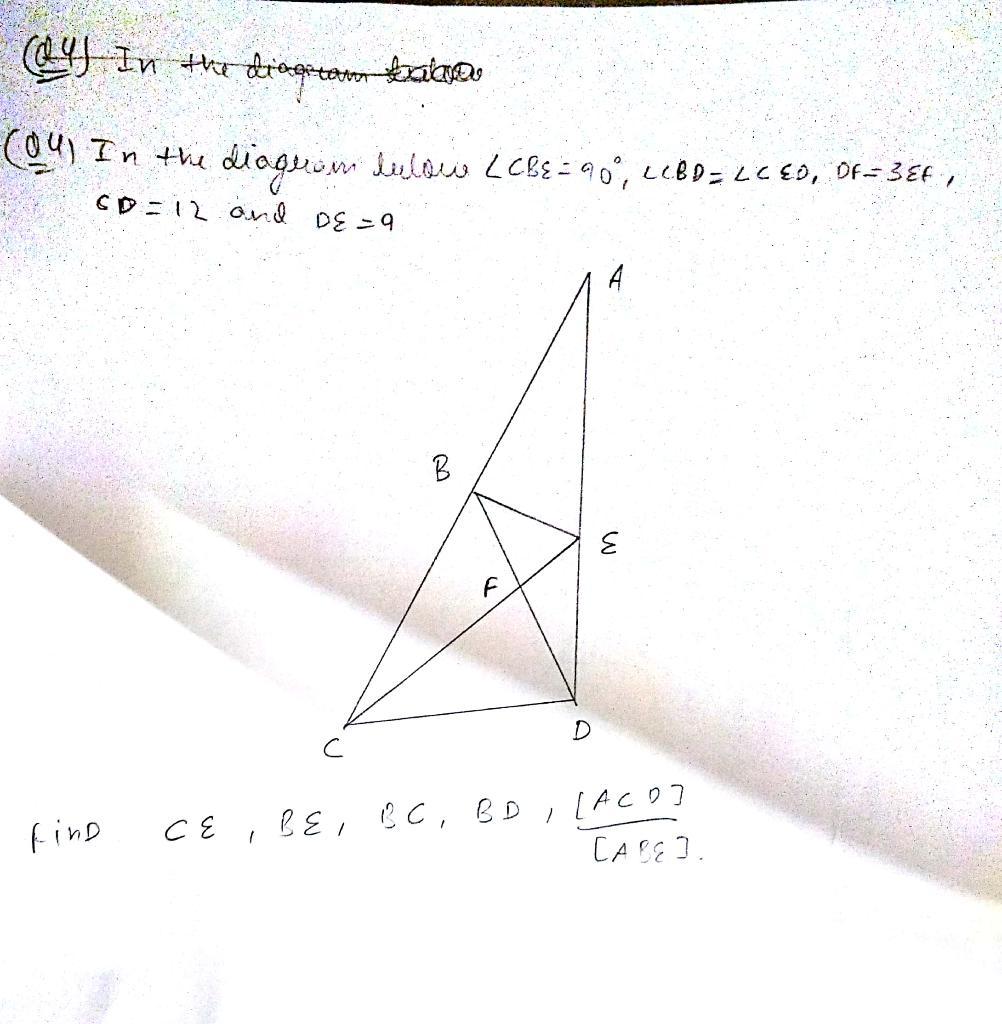 (Q4) In the diagram below
(Q4) In the diagram below ∠CBE = 90°, ∠CBD = ∠CED, DF = 3EF,
CD = 12 and DE = 9
A
B
E
F
D
C
Find CE, BE, BC, BD, [ACD]
[ABE].